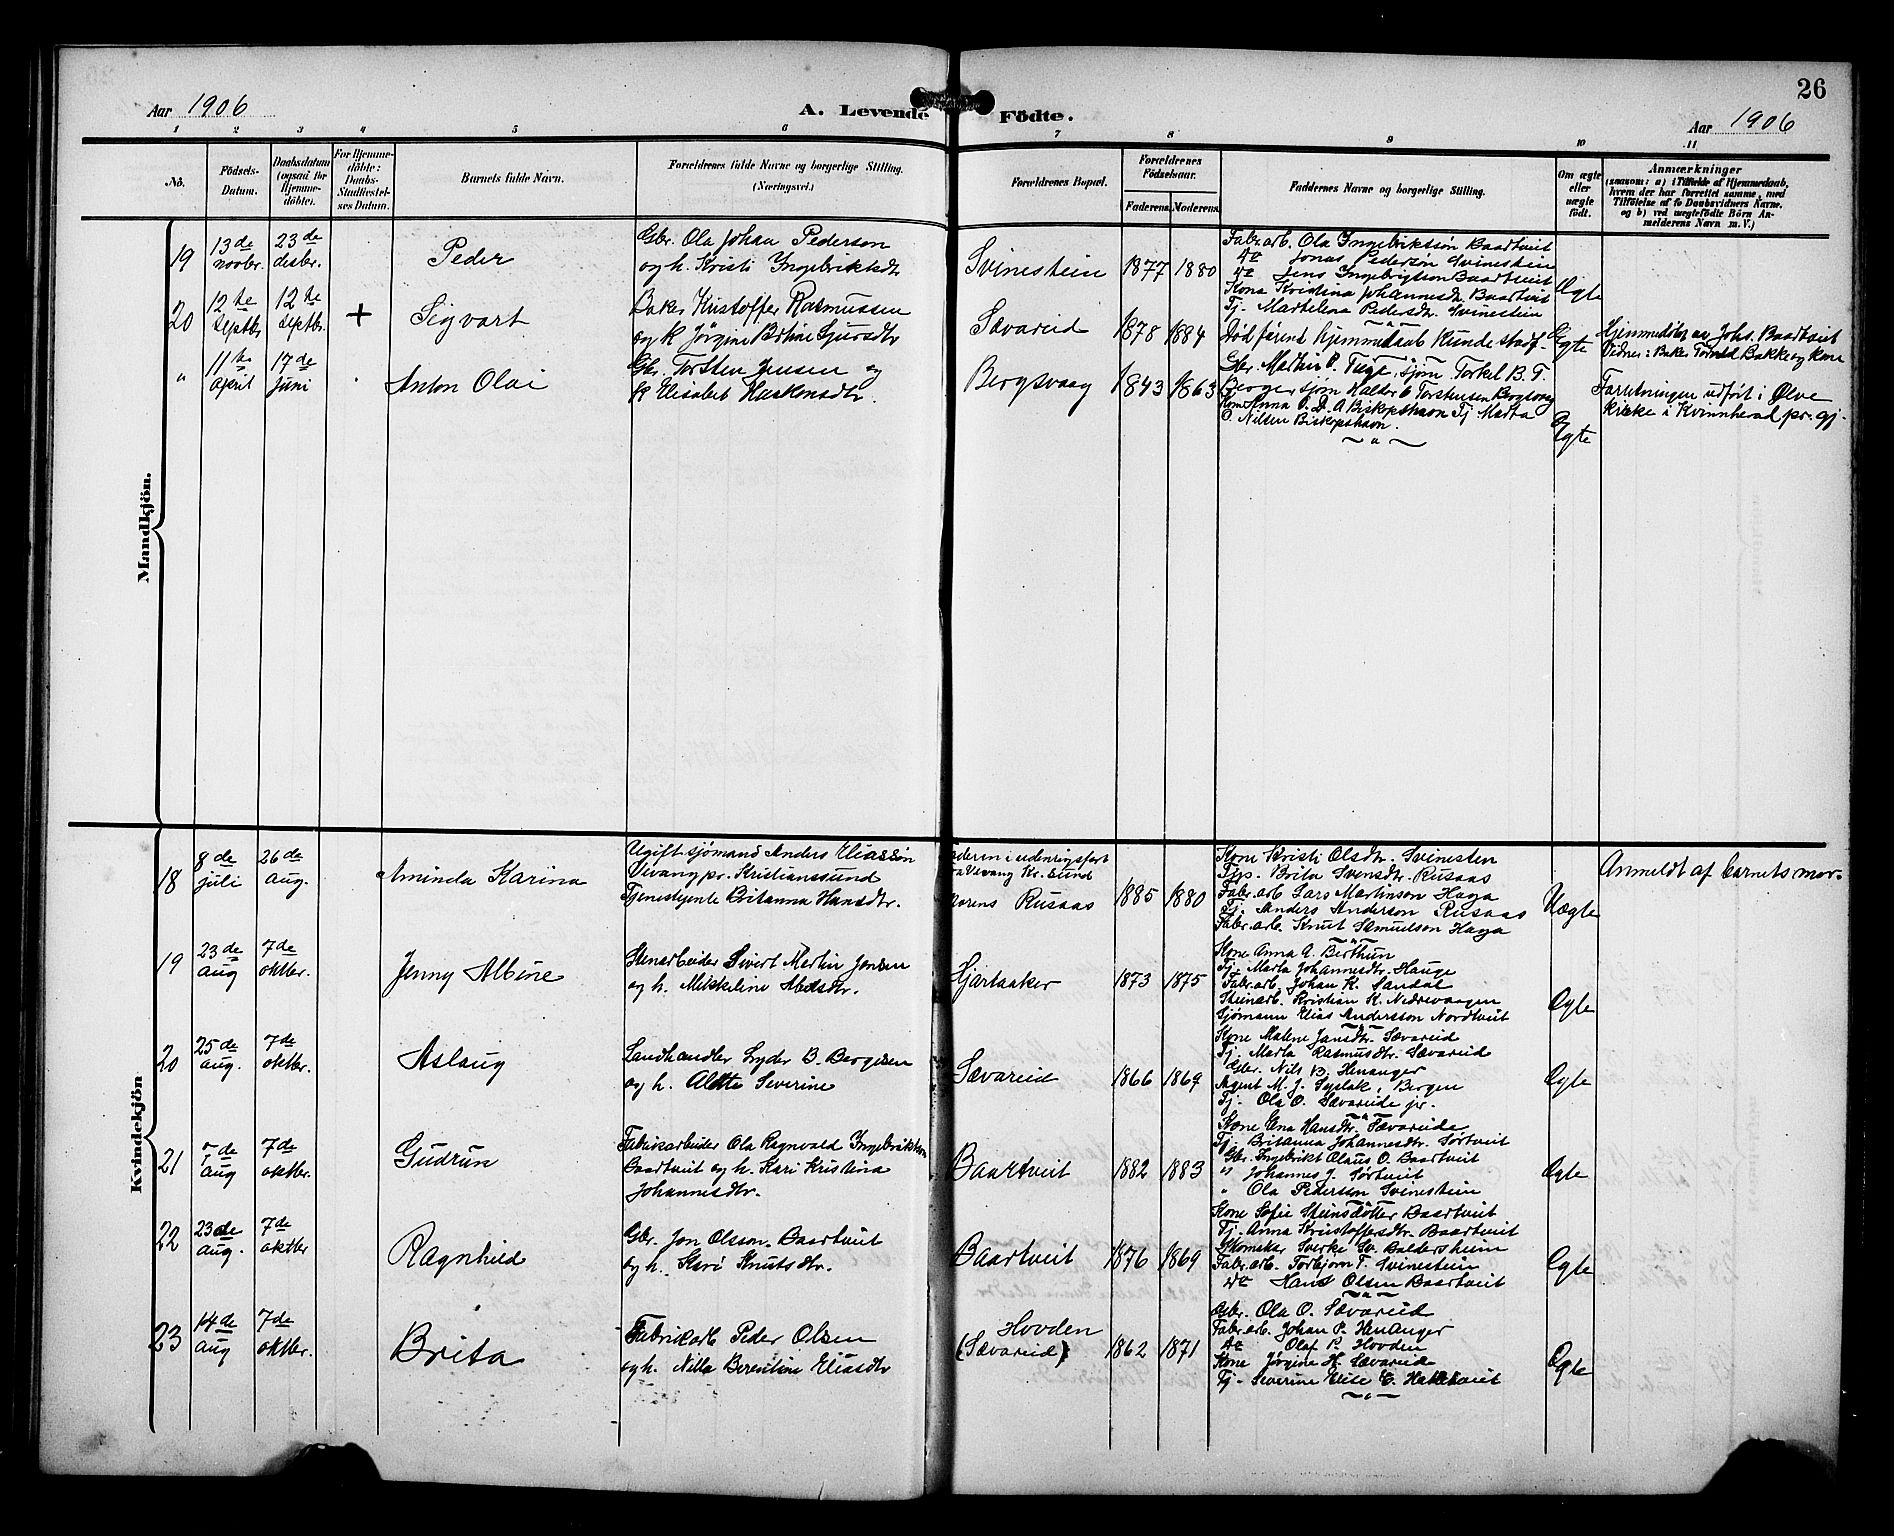 26
Aar 1906
A. Levende Födte.
Aar 1906
1 2 3 4 5 6 7 8 9 10 11
No.
Födsels-Datum.
Daabsdatum (ogsaa for Hjemmedöbte).
For Hjemmedöbte: Daabs-Stadfæstelses Datum.
Barnets fulde Navn.
Forældrenes fulde Navne og borgerlige Stilling. (Næringsvei.)
Forældrenes Bopæl.
Forældrenes Födselsaar.
Faderens. Moderens.
Faddernes Navne og borgerlige Stilling.
Om ægte eller uægte födt.
Anmærkninger
(saasom: a) i Tilfælde af Hjemmedaab, hvem der har forrettet samme, med Tilföielse af to Daabsvidners Navne, og b) ved uægtefödte Börn Anmelderens Navn m. V.)
Mandkjön.
19
13de novbr.
23de desbr.
Peder
Gbr. Ola Johan Pederson
og h. Kristi Ingebriktsdtr
Svinestein
1877 1880
Fabr.arb. Ola Ingebriktsön Baartveit
do Jonas Pedersön Svinestein
do Jens Ingebrigtson Baartveit
Kona Kristina Johannesdr. Baartveit
Tj. Marthelena Pedersdtr. Svinestein
Ægte
20
12te septbr
12te septbr.
+
Sigvart
Baker Kristoffer Rasmussen
og k Jörgine Bertine Sjursdtr
Sævareid
1878 1884
Död förend hjemmedaab kunde stadf.
Egte
Hjemmedöbt av Johs. Baartveit
Vidner: Bake. Bakke og kone
"
11te april
17de juni
Anton Olai
Gbr. Torsten Jensen og
k Elisabet Haakonsdtr.
Bergsvaag
1843 1863
Gbr. Martin P. Tuge, sjöm. Torkel B. T.
Berge, sjöm Halder E Torstensen Bergsvaag
Kone Anna Biskopshavn Tj. Marta
O. Nilsen Biskopshavn.
Egte
Forretningen udfört i Ølve
kirke i Kvinnherad pr. gj.
Kvindekjön
18
8de juli
26de aug.
Aminda Karina
Ugift sjömand Anders Eliassön
Vevang pr. Kristianssund
Tjenestjente Britanna Hansdtr.
Faderen i udenrigsfart
fra Vevang Kr. sund
Morens Rusaas
1885 1880
Kone Kristi Olsdtr. Svinesten
Brita Svensdtr. Rusaas
Fabr.arb Lars Martinson Haga
Tj. Anders Anderson Rusaas
Fabr.arb. Knut Samuelson Haga
Uægte
Anmeldt af barnets mor.
19
23de aug
7de oktbr.
Jenny Albine
Stenarbeider Sivert Martin Jonsen
og h. Mikkeline Abelsdtr.
Hjartaaker
1873 1875
Kone Anna A. Berthun
Tj. Marta Johannesdtr. Hauge
Fabr.arb. Johan K. Sandal
Steinarb. Kristian K. Nedrevaagen
Sjömann Elias Andersson Nordtveit
Egte
20
25de aug.
7de oktbr.
Aslaug
Landhandler Lyder B. Bergesen
og h. Alette Severine
Sævareid
1866 1869
Kone Malene Jansdtr. Sævareid
Tj. Marta Rasmusdtr. Sævareid
Gbr. Nils B. Henanger
Agent M. J. Syslak, Bergen
Tj. Ola O. Sævareide jr.
Egte
21
5de aug
7de oktbr.
Gudrun
Fabrikarbeider Ola Ragnvald Ingebriktson
Baartveit og h. Kari Kristina
Johannesdtr.
Baartveit
1882 1883
Kone Hansdtr. Sævareide
Tj. Britanna Johannesdtr. Sörtveit
Gbr. Ingebrikt Olaus O. Baartveit
" Johannes J. Sörtveit
" Ola Pedersson Svinestein
Egte
22
23de aug.
7de oktbr
Ragnhild
Gbr. Jon Olsson. Baartveit
og h. Kari Knutsdtr.
Baartveit
1876 1869
Kone Sofie Steinsdötter Baartveit
Tj. Anna Kristoffersdtr. Baartveit
Skomaker Sverke Sv. Baldersheim
Fabr.arb. Torbjörn T. Svinestein
do Hans Olsen Baartveit
Egte
23
14de aug
7de oktbr.
Brita
Fabrikarb Peder Olsen
og h. Nilla Berentine Eliasdtr
Hovden
(Sævareid)
1862 1871
Gbr. Ola O. Sævareid
Fabr.arb. Johan P. Henanger
do Olaf P. Hovden
Kone Jörgine H. Sævareid
Tj. Severine Elise E.
Egte